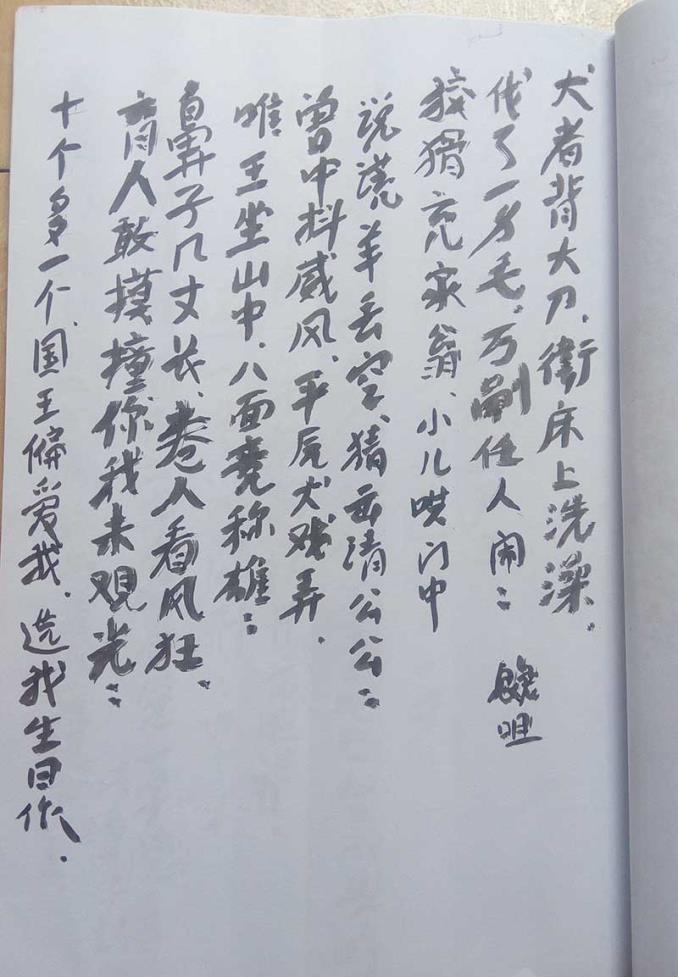 犬者背大刀、衛床上洗澡．
伐了一身毛，万剮任人闹：
狡猾充家翁、小儿哄门中
说谎羊丢空、猜去清公公：
曾中抖威风、平原犬戏弄、
唯王坐山中、八面竟称雄：
鼻子几丈长、卷人看风狂、
盲人敢摸撞你我来观光：
十个第一个、国王偏爱我、选我生日作．